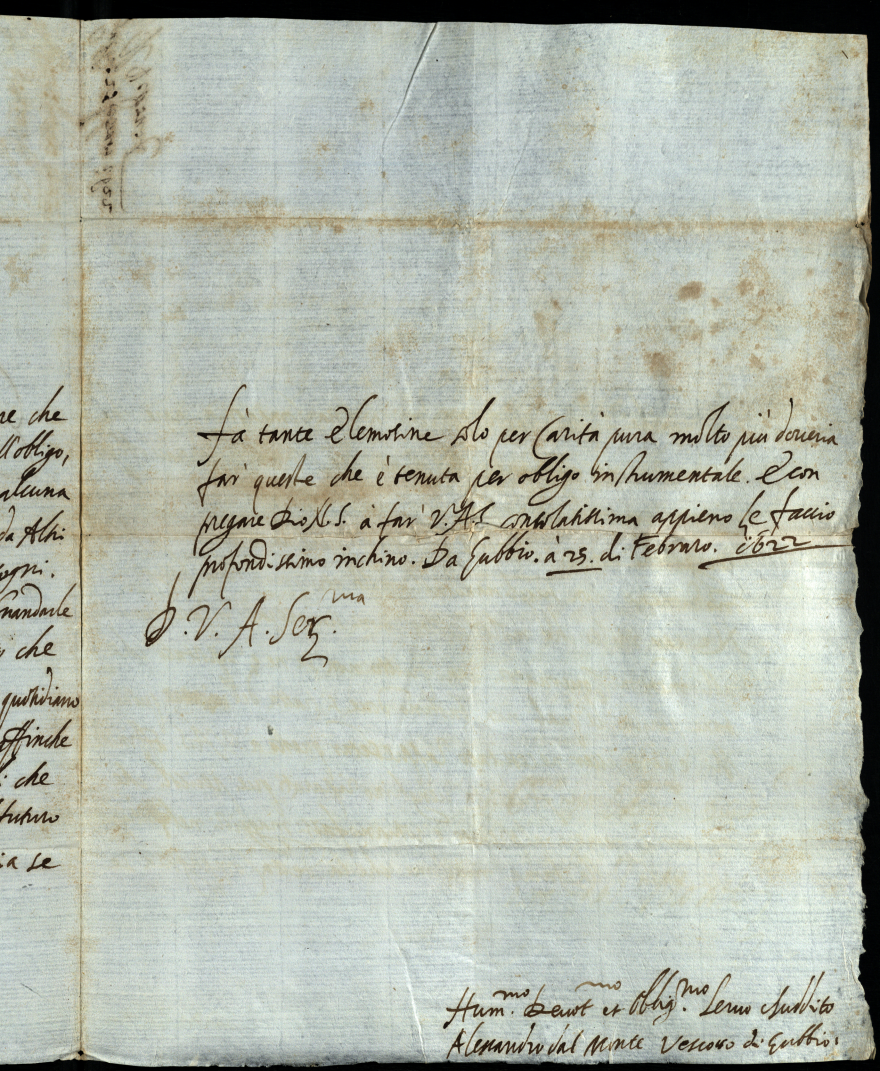 re che
ll'obligo,
alcuna
da Altri
sogni.
mandarle
che
quotidiano
affinche
che
futuro
ia se
fà tante Elemosine solo per Carità pura molto più doveria
far' queste che è tenuta per obligo instrumentale. E con
pregare Dio N.S. à far' V.A.S. consolatissima appieno le faccio
profondissimo inchino. Da Gubbio. à 25. di Febraro. 1622
D. V. A. Ser.ma
Hum.mo Devot.mo et Oblig.mo Servo e Suddito
Alessandro dal Monte Vescovo di Gubbio.